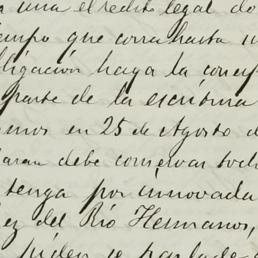 una el redito legal do
empo que corra hasta
ligación haga la
parte de la escritura
mos en 25 de Agosto d
aran debe conservar todo
tenga por innovada
ez del Río Hermanos,
piden se